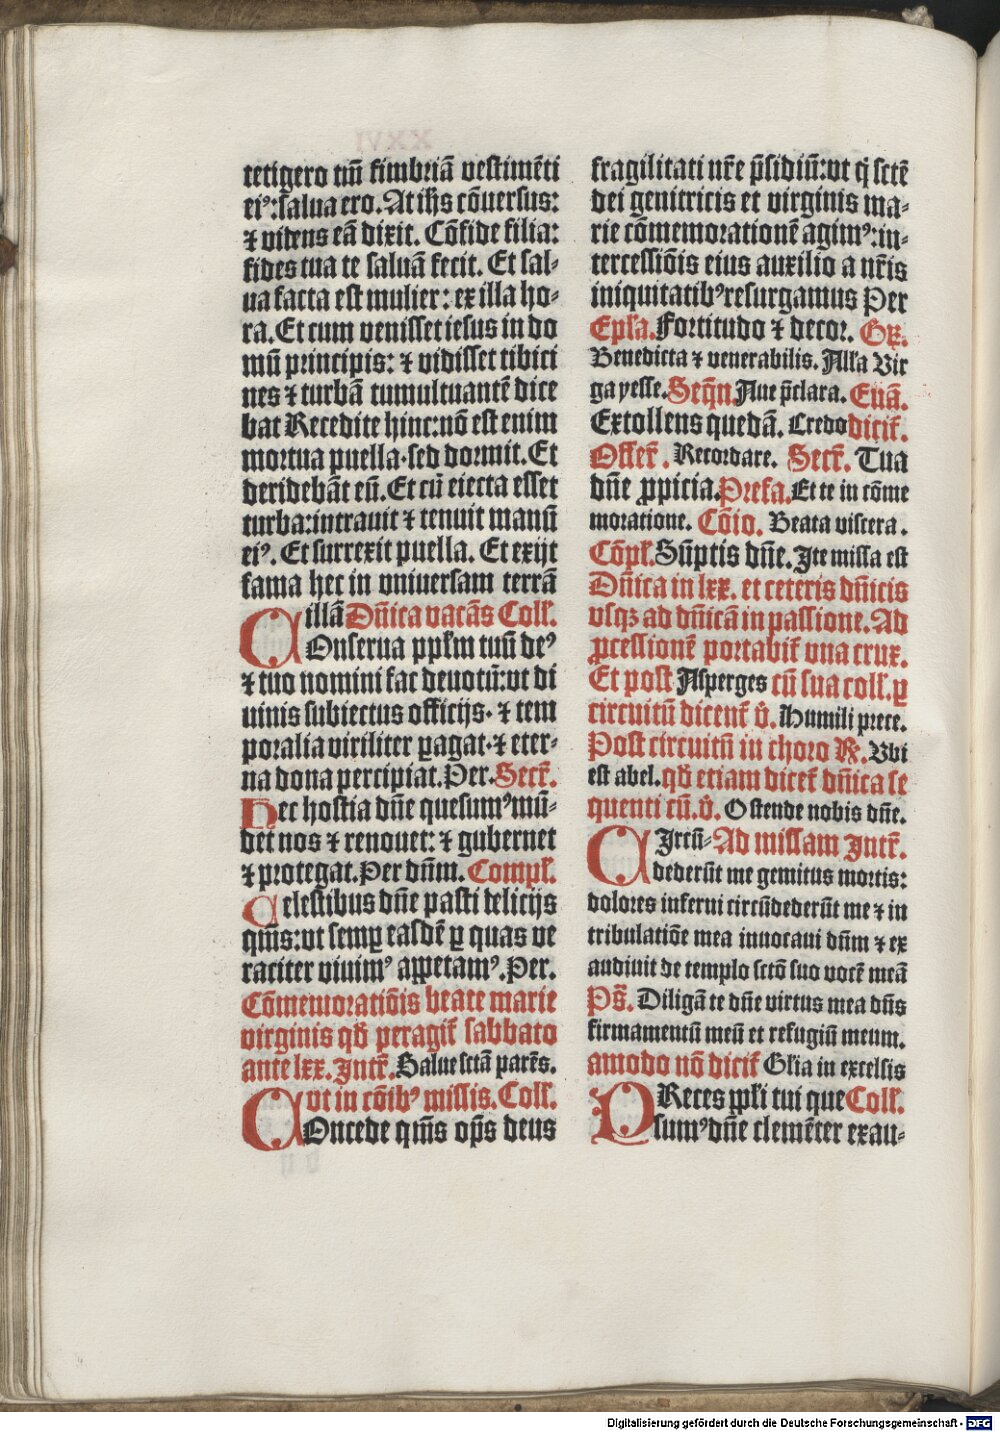 tetigero tm̄ fimbriā vestimēti
eiꝰ: salua ero. At ih̄s cōuersus:
⁊ videns eā dixit. Cōfide filia:
fides tua te saluā fecit. Et sal⸗
ua facta est mulier: ex illa ho⸗
ra. Et cum venisset iesus in do
mū principis: ⁊ vidisset tibici
nes ⁊ turbā tumultuantē dice
bat Recedite hinc: nō est enim
mortua puella. sed dormit. Et
deridebāt eū. Et cū eiecta esset
turba: intrauit ⁊ tenuit manū
eiꝰ. Et surrexit puella. Et exijt
fama hec in vniuersam terrā
illā Dn̄ica vacās Coll̄.
COnserua ppl̄m tuū deꝰ
⁊ tuo nomini fac deuotū: vt di
uinis subiectus officijs. ⁊ tem
poralia viriliter ꝑagat. ⁊ eter⸗
na dona percipiat. Per. Secr̄.
Hec hostia dn̄e quesumꝰ mū⸗
det nos ⁊ renouet: ⁊ gubernet
⁊ protegat. Per dn̄m. Compl̄.
Celestibus dn̄e pasti delicijs
qm̄s: vt semꝑ easdē ꝑ quas ve
raciter viuimꝰ appetamꝰ. Per.
Cōmemoratiōis beate marie
virginis qđ peragit̄ sabbato
ante lxx. Intr̄. Salue sctā parēs.
vt in cōibꝰ missis. Coll̄.
COncede qm̄s op̄s deus
fragilitati nr̄e p̄sidiū: vt q̄ sctē
dei genitricis et virginis ma⸗
rie cōmemorationē agimꝰ: in⸗
tercessiōis eius auxilio a nr̄is
iniquitatibꝰ resurgamus Per
Epl̄a. Fortitudo ⁊ decor. Gr̄.
Benedicta ⁊ venerabilis. Alla Vir
ga yesse. Seqn̄ Aue p̄clara. Euā.
Extollens quedā. Credo dicit̄.
Offer̄. Recordare. Secr̄. Tua
dn̄e ꝓpicia. Prefa. Et te in cōme
moratione. Cōio. Beata viscera.
Cōpl̄. Sūptis dn̄e. Ite missa est
Dn̄ica in lxx. et ceteris dn̄icis
vsqꝫ ad dn̄icā in passione. Ad
ꝓcessionē portabit̄ vna crux.
Et post Asperges cū sua coll̄. ꝑ
circuitū dicent̄ v̄. Humili prece.
Post circuitū in choro ℟. Vbi
est abel. qđ etiam dicet̄ dn̄ica se
quenti cū. v̄. Ostende nobis dn̄e.
Ad missam Intr̄.
CIrcū⸗
dederūt me gemitus mortis:
dolores inferni circūdederūt me ⁊ in
tribulatiōe mea inuocaui dn̄m ⁊ ex
audiuit de templo sctō suo vocē meā
Ps̄. Diligā te dn̄e virtus mea dn̄s
firmamentū meū et refugiū meum.
amodo nō dicit̄ Gl̄ia in excelsis
PReces ppl̄i tui que Coll̄.
sumꝰ dn̄e clemēter exau⸗
Digitalisierung gefördert durch die Deutsche Forschungsgemeinschaft - DFG